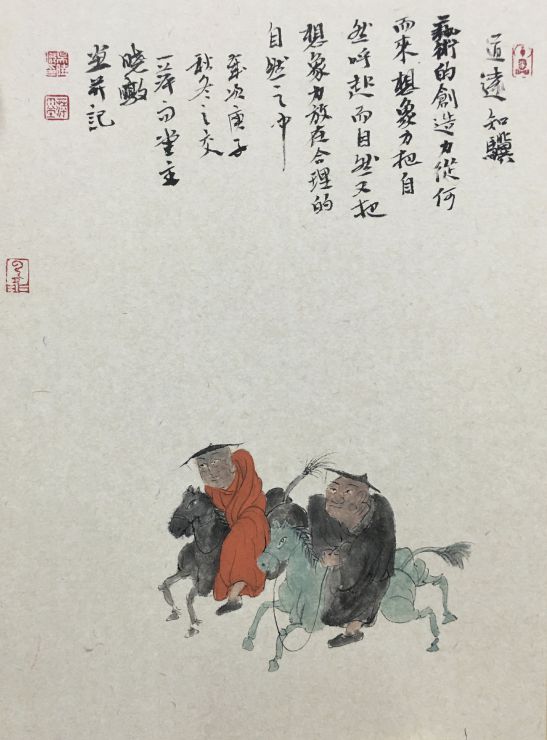 道遠知驥
藝術的創造力從何
而來想象力把自
然呼起而自然又把
想象力放在合理的
自然之中
歲次庚子
秋冬之交
堂主
并記